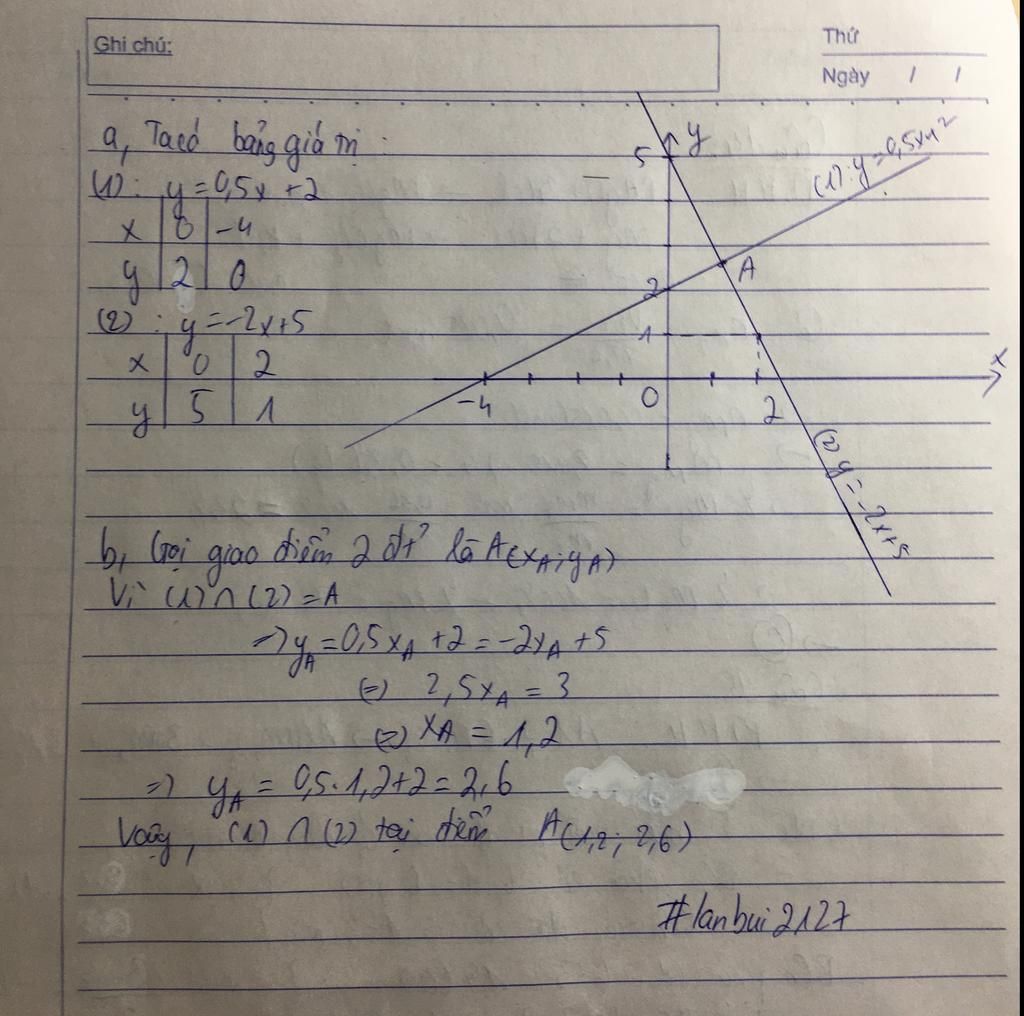 Ghi chú:
Thứ
Ngày / /
a, Ta có bảng giá trị :
(1) : y = 0,5x + 2
x | 0 | -4
y | 2 | 0
(2) : y = -2x + 5
x | 0 | 2
y | 5 | 1
5 y
(1): y = 0,5x+2
A
2
1
x
-4 0 2
(2) y = -2x+5
b, Gọi giao điểm 2 đt² là A(xA; yA)
Vì (1) ∩ (2) = A
=> yA = 0,5xA + 2 = -2xA + 5
(=) 2,5xA = 3
(=) xA = 1,2
=> yA = 0,5.1,2+2 = 2,6
Vậy, (1) ∩ (2) tại điểm A(1,2; 2,6)
#lanbui2127